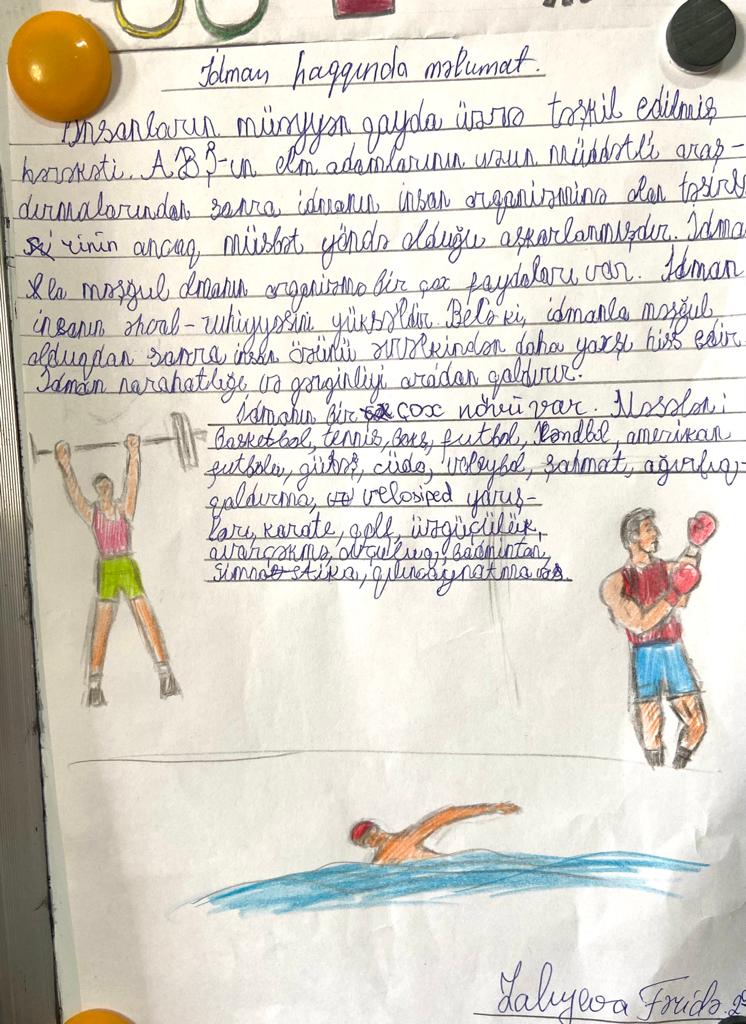 İdman haqqında məlumat.
İnsanların müəyyən qayda üzrə təşkil edilmiş
hərəkəti. ABŞ-ın elm adamlarının uzun müddətli araş-
dırmalarından sonra idmanın insan orqanizminə olan təsirl
rinin ancaq müsbət yöndə olduğu aşkarlanmışdır. İdma
la məşğul olmanın orqanizmə bir çox faydaları var. İdman
insanın əhval-ruhiyyəsini yüksəldir. Belə ki, idmanla məşğul
olduqdan sonra insan özünü əvvəlkindən daha yaxşı hiss edir.
İdman narahatlığı və gərginliyi aradan qaldırır.
İdmanın bir çox növü var. Məsələn:
Basketbol, tennis, boks, futbol, həndbol, amerikan
futbolu, güləş, cüdo, voleybol, şahmat, ağırlıq-
qaldırma, velosiped yarış-
ları, karate, golf, üzgüçülük,
avarçəkmə, atıcılıq, badminton,
gimnastika, qılıncoynatma
Fəridə